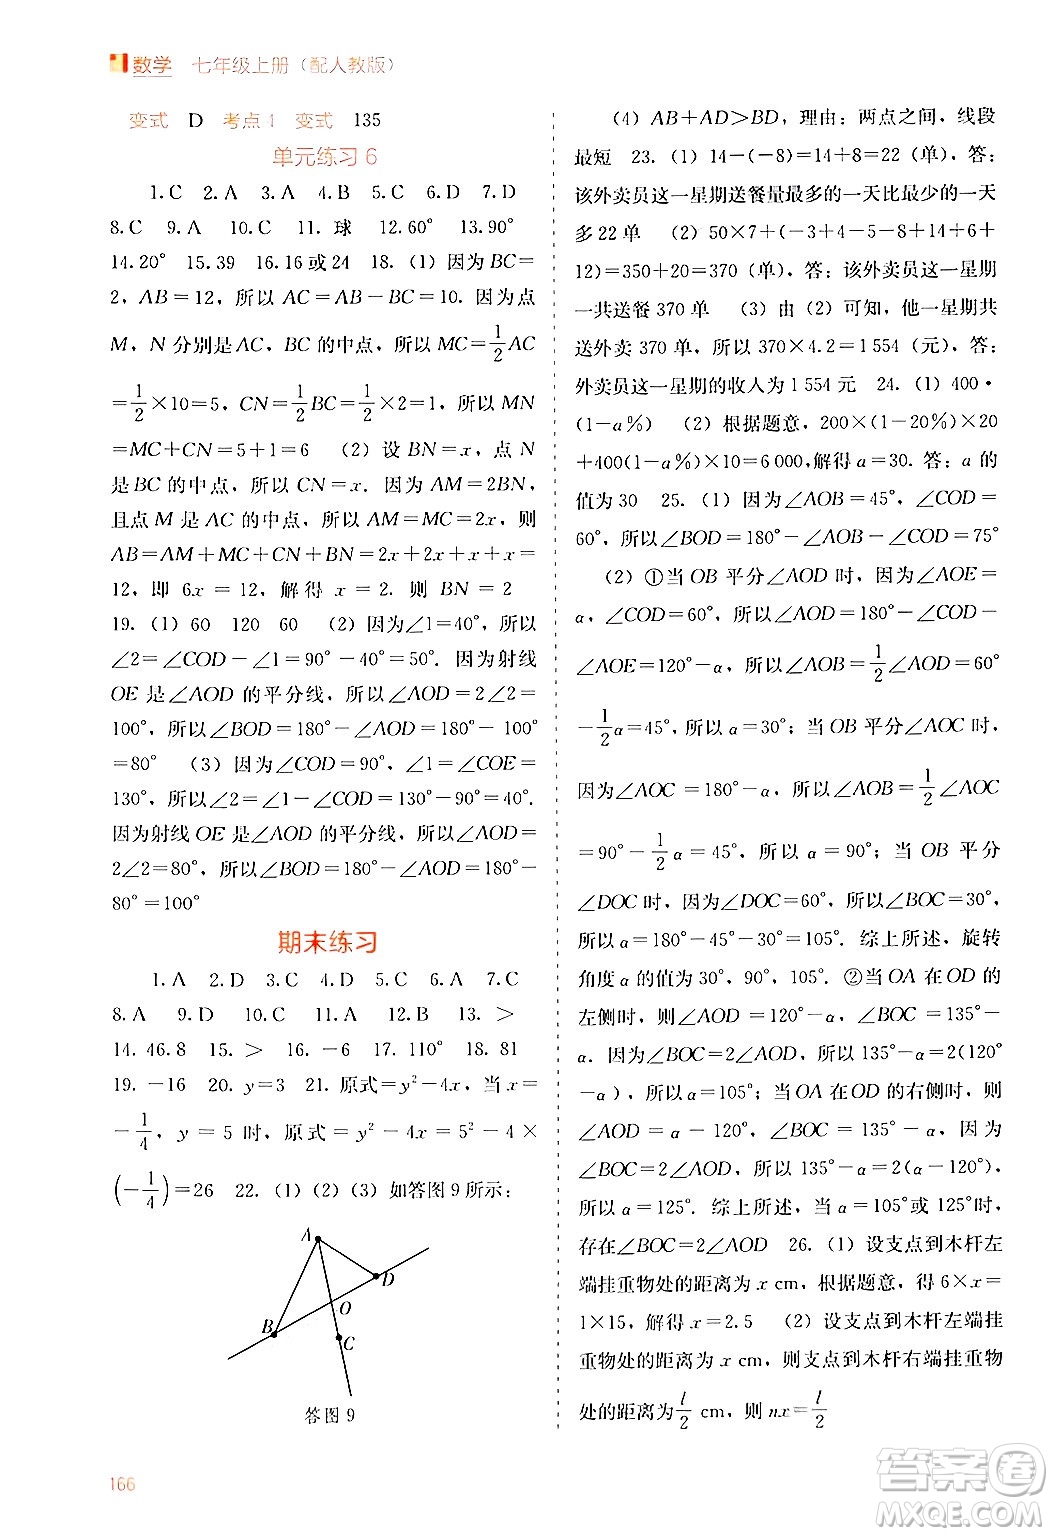 数学 七年级上册（配人教版）
变式 D 考点1 变式 135
单元练习6
1.C 2.A 3.A 4.B 5.C 6.D 7.D
8.C 9.A 10.C 11.球 12.60° 13.90°
14.20° 15.39 16.16或24 18.(1)因为BC=
2，AB=12，所以AC=AB-BC=10.因为点
M，N分别是AC，BC的中点，所以MC=1/2AC
=1/2×10=5，CN=1/2BC=1/2×2=1，所以MN
=MC+CN=5+1=6 (2)设BN=x，点N
是BC的中点，所以CN=x. 因为AM=2BN，
且点M是AC的中点，所以AM=MC=2x，则
AB=AM+MC+CN+BN=2x+2x+x+x=
12，即6x=12，解得x=2. 则BN=2
19.(1)60 120 60 (2)因为∠1=40°，所以
∠2=∠COD-∠1=90°-40°=50°. 因为射线
OE是∠AOD的平分线，所以∠AOD=2∠2=
100°，所以∠BOD=180°-∠AOD=180°-100°
=80° (3)因为∠COD=90°，∠1=∠COE=
130°，所以∠2=∠1-∠COD=130°-90°=40°.
因为射线OE是∠AOD的平分线，所以∠AOD=
2∠2=80°，所以∠BOD=180°-∠AOD=180°-
80°=100°
期末练习
1.A 2.D 3.C 4.C 5.D 6.A 7.C
8.A 9.D 10.C 11.A 12.B 13.>
14.46.8 15.> 16.-6 17.110° 18.81
19.-16 20.y=3 21.原式=y²-4x，当x=
-1/4，y=5时，原式=y²-4x=5²-4×
(-1/4)=26 22.(1)(2)(3)如答图9所示：
A
D
O
B
C
答图9
166
(4)AB+AD>BD，理由：两点之间，线段
最短 23.(1)14-(-8)=14+8=22(单)，答：
该外卖员这一星期送餐量最多的一天比最少的一天
多22单 (2)50×7+(-3+4-5+14-8+6+
12)=350+20=370(单)，答：该外卖员这一星期
一共送餐370单 (3)由(2)可知，他一星期共
送外卖370单，所以370×4.2=1 554(元)，答：
外卖员这一星期的收人为1 554元 24.(1)400·
(1-a%) (2)根据题意，200×(1-20%)×20
+400(1-a%)×10=6 000，解得a=30. 答：a的
值为30 25.(1)因为∠AOB=45°，∠COD=
60°，所以∠BOD=180°-∠AOB-∠COD=75°
(2)①当OB平分∠AOD时，因为∠AOE=
α，∠COD=60°，所以∠AOD=180°-∠COD-
∠AOE=120°-α，所以∠AOB=1/2∠AOD=60°
-1/2α=45°，所以α=30°；当OB平分∠AOC时，
因为∠AOC=180°-α，所以∠AOB=1/2∠AOC
=90°-1/2α=45°，所以α=90°；当OB平分
∠DOC时，因为∠DOC=60°，所以∠BOC=30°，
所以α=180°-45°-30°=105°. 综上所述，旋转
角度α的值为30°，90°，105°. ②当OA在OD的
左侧时，则∠AOD=120°-α，∠BOC=135°-
α. 因为∠BOC=2∠AOD，所以135°-α=2(120°
-α)，所以α=105°；当OA在OD的右侧时，则
∠AOD=α-120°，∠BOC=135°-α，因为
∠BOC=2∠AOD，所以135°-α=2(α-120°)，
所以α=125°. 综上所述，当α=105°或125°时，
存在∠BOC=2∠AOD 26.(1)设支点到木杆左
端挂重物处的距离为x cm，根据题意，得6×x=
1×15，解得x=2.5 (2)设支点到木杆左端挂
重物处的距离为x cm，则支点到木杆右端挂重物
处的距离为l/2 cm，则nx=l/2
答案圈
MXQE.COM